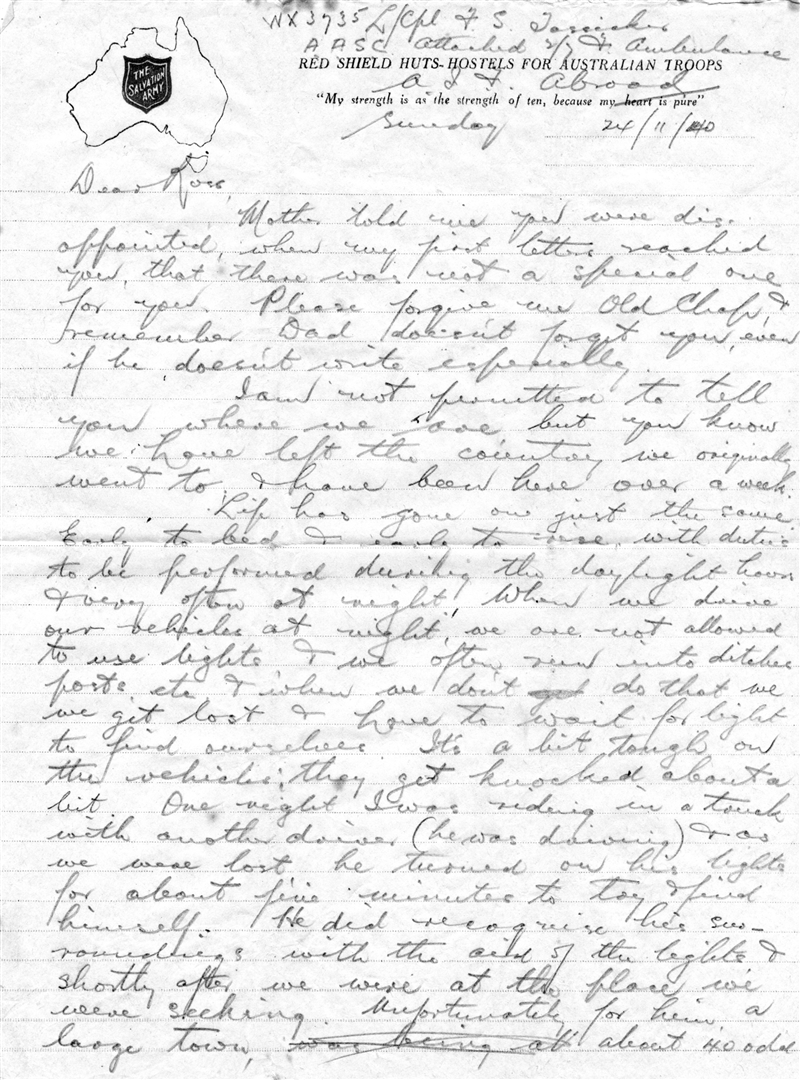 WX3735 L/Cpl F. S. Tassicker
AASC Attached 2/7 F. Ambulance
RED SHIELD HUTS-HOSTELS FOR AUSTRALIAN TROOPS
A I F Abroad
"My strength is as the strength of ten, because my heart is pure"
Sunday 24/11/40
THE SALVATION ARMY
Dear Ross,
Mother told me you were dis-
appointed, when my first letter reached
you, that there was not a special one
for you. Please forgive me Old Chap, &
remember Dad doesn't forget you, even
if he doesn't write especially.
I am not permitted to tell
you where we are but you know
we have left the country we originally
went to & have been here over a week.
Life has gone on just the same.
Early to bed & early to rise, with duties
to be performed during the daylight hours
& very often at night. When we drive
our vehicles at night, we are not allowed
to use lights & we often run into ditches
posts etc & when we don't do that we
we get lost & have to wait for light
to find ourselves. It's a bit tough on
the vehicles; they get knocked about a
bit. One night I was riding in a truck
with another driver (he was driving) & as
we were lost he turned on his lights
for about five minutes to try & find
himself. He did recognise his sur-
roundings with the aid of the lights &
shortly after we were at the place we
were seeking. Unfortunately for him, a
large town, was being at about 40 odd